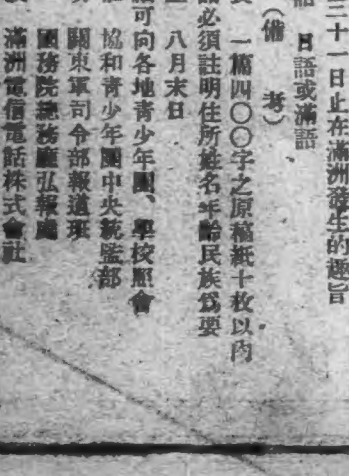 三十一日止在滿洲發生的趣旨
語 日語或滿語
(備考)
一篇四〇〇字之原稿紙十枚以內
必須註明住所姓名年齡民族爲要
八月末日
可向各地青少年團、學校照會
協和青少年團中央統監部
關東軍司令部報道班
國務院總務廳弘報處
滿洲電信電話株式會社